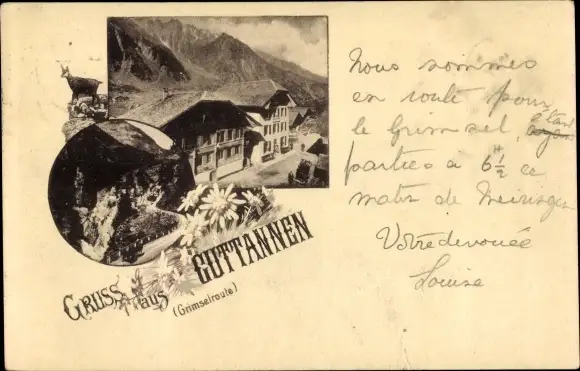 GRUSS aus GUTTANNEN
(Grimselroute)
Nous sommes
en route pour
le Grimsel, étant
parties à 6 H ½ ce
matin de Meiringen
Votre devouée
Louise